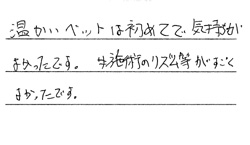 温かいベットは初めてで気持ちが
よかったです。 施術のリズム等がすごく
よかったです。